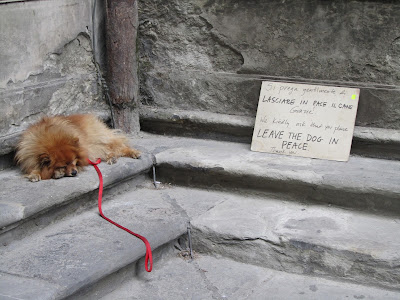 Si prega gentilmente di
LASCIARE IN PACE IL CANE
Grazie.
We kindly ask that you please
LEAVE THE DOG IN
PEACE
Thank you